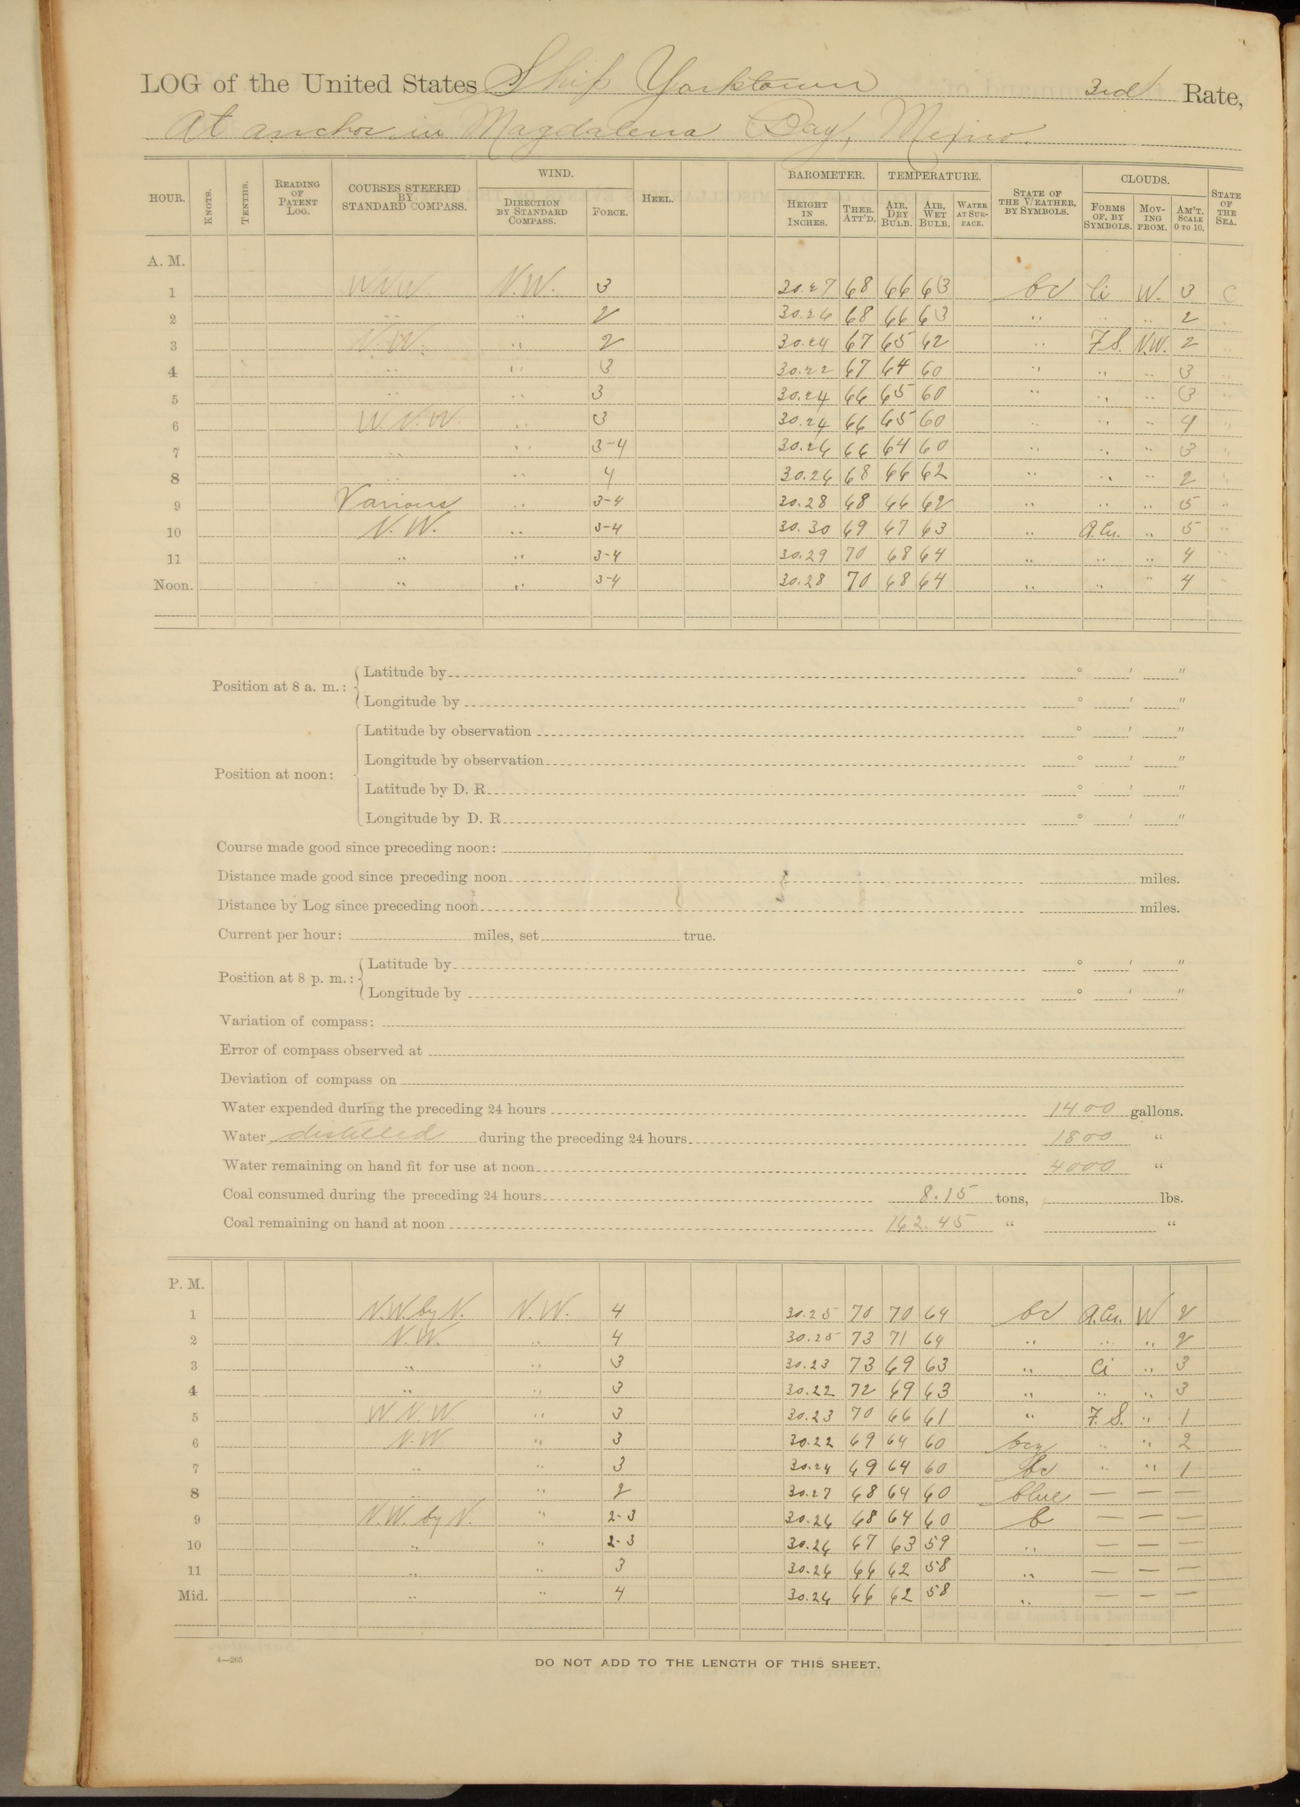 LOG of the United States Ship Yorktown 3rd Rate,
At anchor in Magdalena Bay, Mexico.
HOUR. KNOTS. TENTHS. READING OF PATENT LOG. COURSES STEERED BY STANDARD COMPASS. WIND. DIRECTION BY STANDARD COMPASS. FORCE. HEEL. BAROMETER. HEIGHT IN INCHES. THER. ATT'D. TEMPERATURE. AIR, DRY BULB. AIR, WET BULB. WATER AT SURFACE. STATE OF THE WEATHER, BY SYMBOLS. CLOUDS. FORMS OF, BY SYMBOLS. MOVING FROM. AM'T. SCALE 0 TO 10. STATE OF THE SEA.
A. M.
1 WNW N.W. 3 30.27 68 66 63 bc Ci W. 3 C
2 " " 2 30.26 68 66 63 " " " 2
3 N.W. " 2 30.24 67 65 62 " F.S. N.W. 2 "
4 " " 3 30.22 67 64 60 " " " 3 "
5 " " 3 30.24 66 65 60 " " " 3 "
6 W.N.W. " 3 30.24 66 65 60 " " " 4 "
7 " " 3-4 30.26 66 64 60 " " " 3 "
8 " " 4 30.26 68 66 62 " " " 2 "
9 Various " 3-4 30.28 68 66 62 " " " 5 "
10 N.W. " 3-4 30.30 69 67 63 " A.Cu. " 5 "
11 " " 3-4 30.29 70 68 64 " " " 4 "
Noon. " " 3-4 30.28 70 68 64 " " " 4 "
Position at 8 a. m.: Latitude by ° ′ ″
Longitude by ° ′ ″
Position at noon: Latitude by observation ° ′ ″
Longitude by observation ° ′ ″
Latitude by D. R. ° ′ ″
Longitude by D. R. ° ′ ″
Course made good since preceding noon:
Distance made good since preceding noon miles.
Distance by Log since preceding noon miles.
Current per hour: miles, set true.
Position at 8 p. m.: Latitude by ° ′ ″
Longitude by ° ′ ″
Variation of compass:
Error of compass observed at
Deviation of compass on
Water expended during the preceding 24 hours 1400 gallons.
Water distilled during the preceding 24 hours 1800 "
Water remaining on hand fit for use at noon 4000 "
Coal consumed during the preceding 24 hours 8.15 tons, lbs.
Coal remaining on hand at noon 162.45 " "
P. M.
1 N.W. by N. N.W. 4 30.25 70 70 64 bc A.Cu. W 2
2 N.W. " 4 30.25 73 71 64 " " " 2
3 " " 3 30.23 73 69 63 " Ci " 3
4 " " 3 30.22 72 69 63 " " " 3
5 W N W " 3 30.23 70 66 61 " F.S. " 1
6 N.W " 3 30.22 69 64 60 " " 2
7 " " 3 30.24 69 64 60 bc " " 1
8 " " 2 30.27 68 64 60 blue — — —
9 N.W. by N. " 2-3 30.26 68 64 60 b — — —
10 " " 2-3 30.26 67 63 59 " — — —
11 " " 3 30.26 66 62 58 " — — —
Mid. " " 4 30.26 66 62 58 " — — —
4—265
DO NOT ADD TO THE LENGTH OF THIS SHEET.